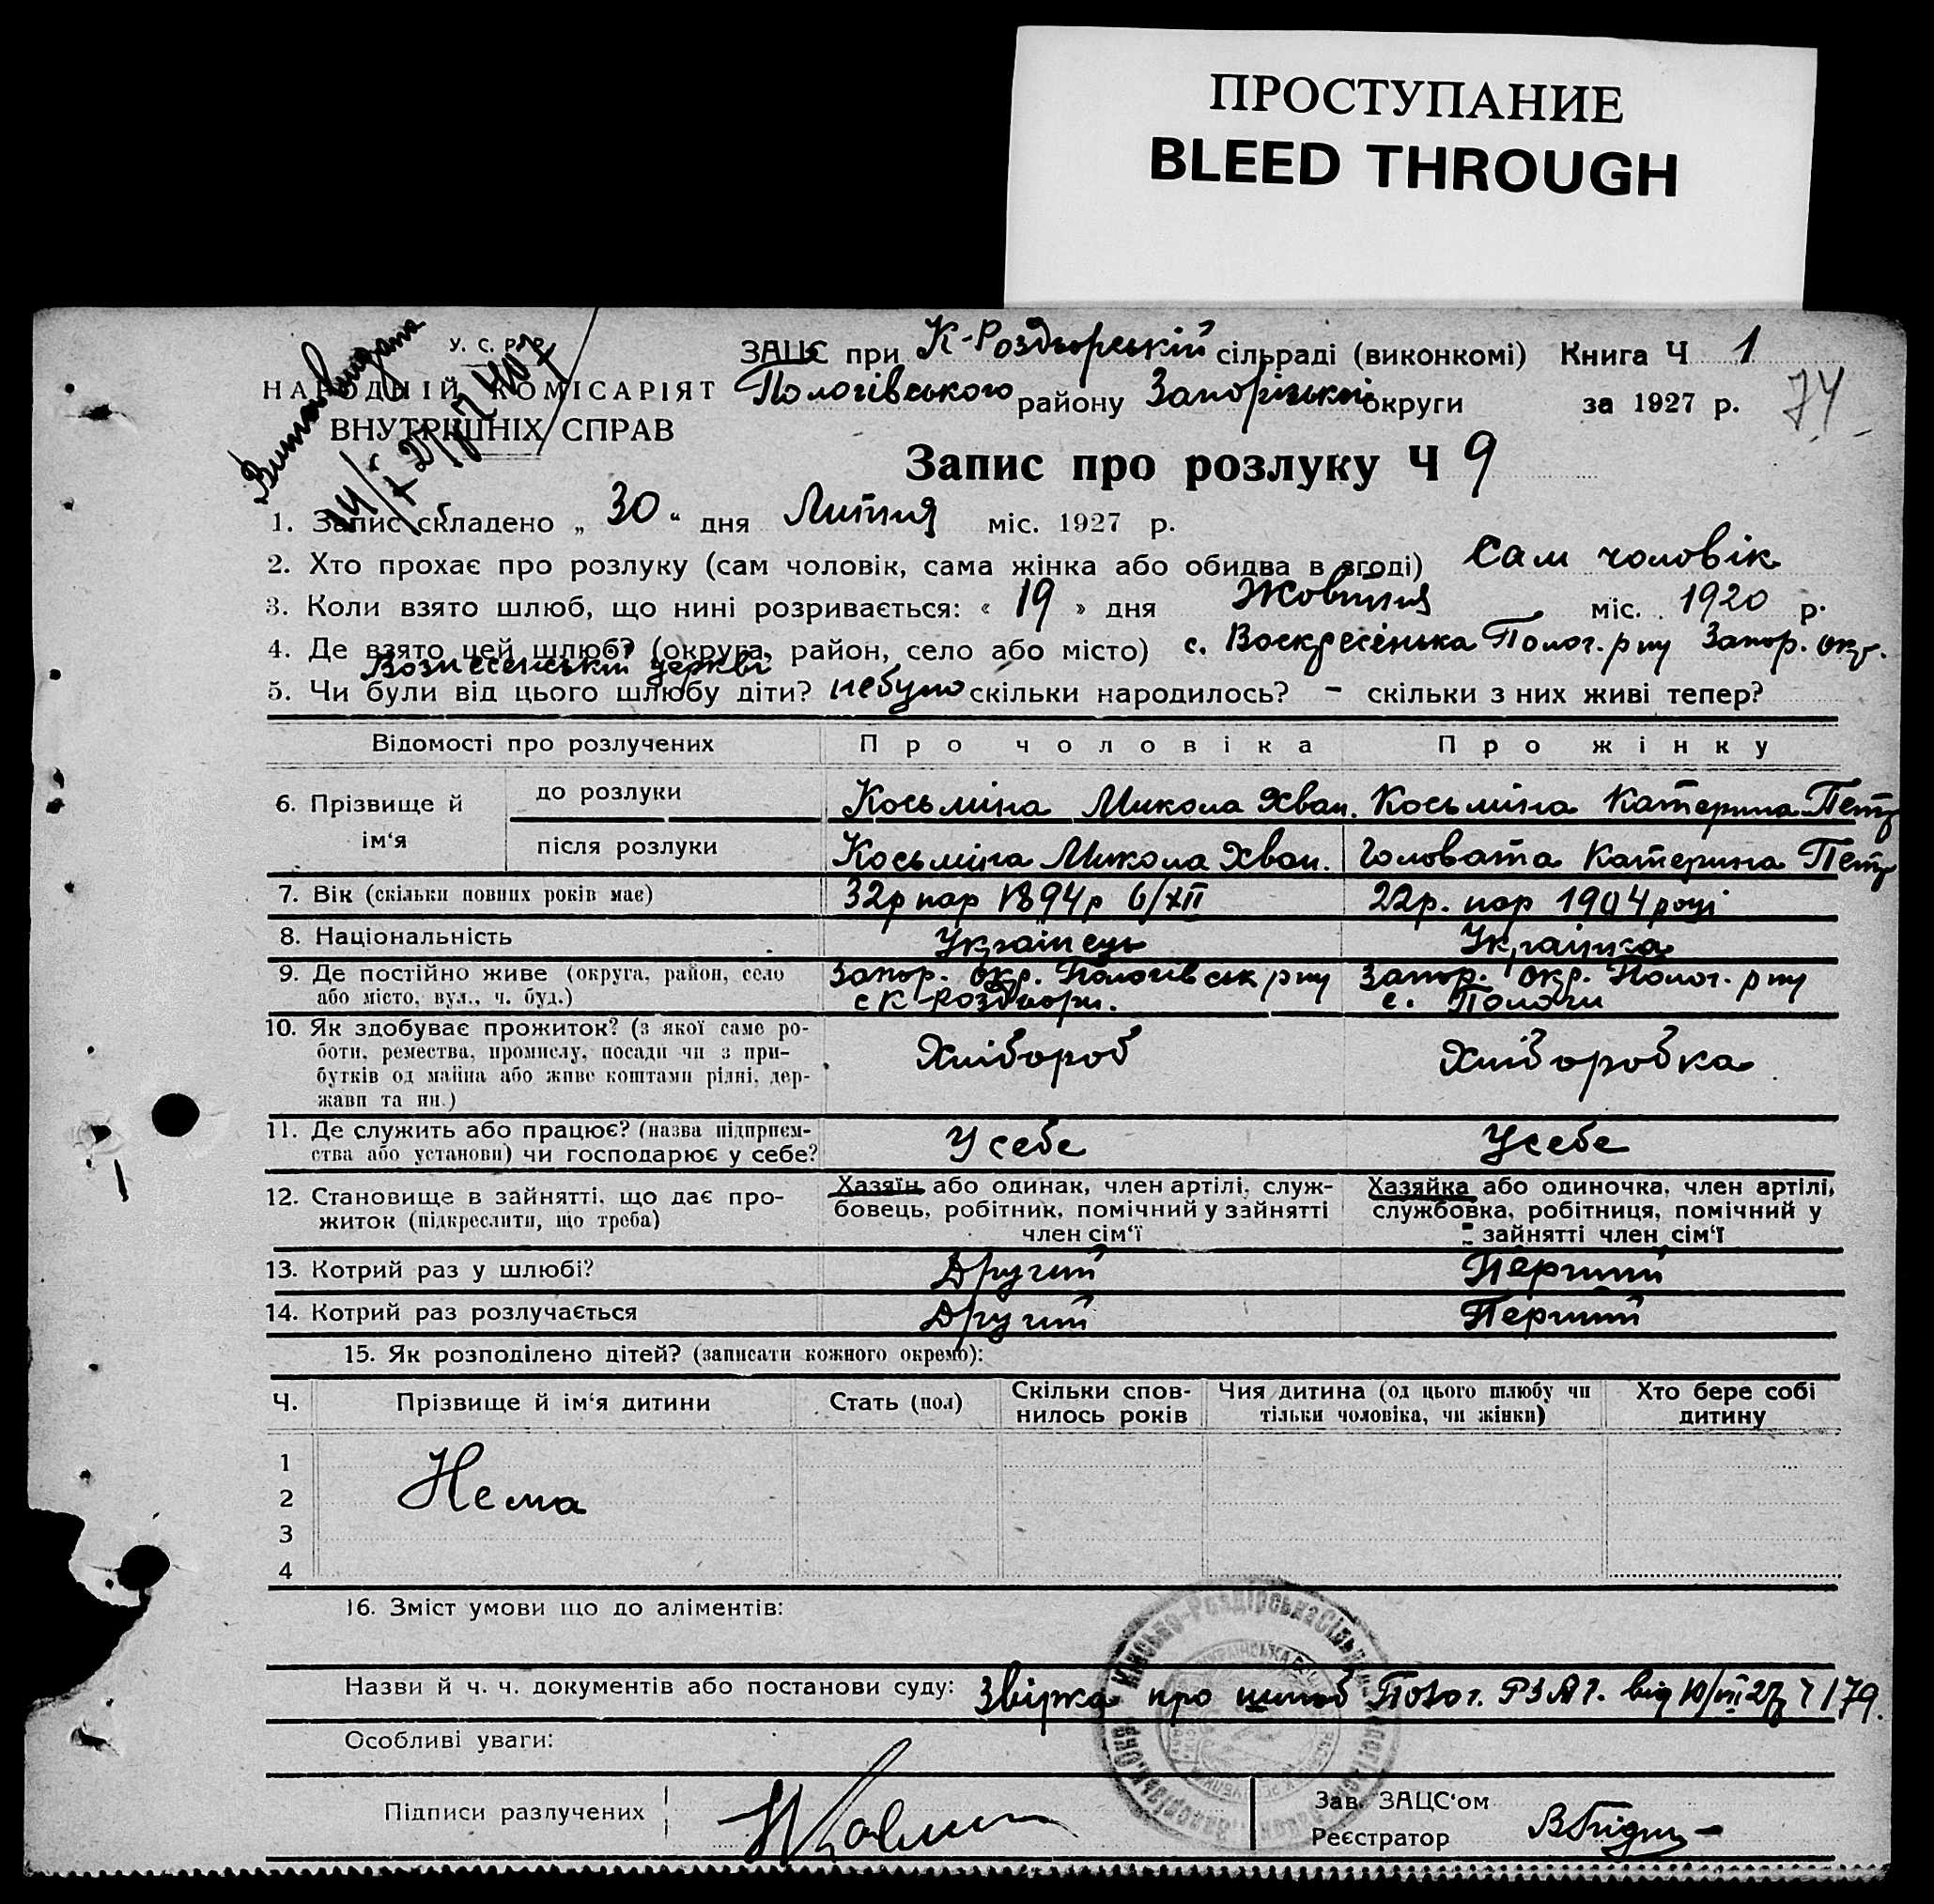 ПРОСТУПАНИЕ
BLEED THROUGH
У. С. Р. Р.
НАРОДНІЙ КОМІСАРІЯТ
ВНУТРІШНІХ СПРАВ
ЗАЦС при К-Роздорській сільраді (виконкомі) Книга Ч 1
Пологівського району Запорізької округи за 1927 р. 74
Запис про розлуку Ч 9
1. Запис складено „ 30 “ дня Липня міс. 1927 р.
2. Хто прохає про розлуку (сам чоловік, сама жінка або обидва в згоді) Сам чоловік
3. Коли взято шлюб, що нині розривається: « 19 » дня Жовтня міс. 1920 р.
4. Де взято цей шлюб? (округа, район, село або місто) с. Воскресенька Полог. р ну Запор. окр.
Вознесенській церкві
5. Чи були від цього шлюбу діти? небуло скільки народилось? – скільки з них живі тепер?
Відомості про розлучених Про чоловіка Про жінку
6. Прізвище й ім‘я
до розлуки Косьміна Микола Хван. Косьміна Катерина Петр
після розлуки Косьміна Микола Хван. Головата Катерина Петр
7. Вік (скільки повних років має) 32р нар 1894р 6/XII 22р. нар 1904 році
8. Національність Українець Українка
9. Де постійно живе (округа, район, село Запор. окр. Пологівськ р ну Запор. окр. Полог. р ну
або місто, вул., ч. буд.) с К-Роздори. с. Пологи
10. Як здобуває прожиток? (з якої саме ро-
боти, ремества, промислу, посади чи з при- Хлібороб Хліборобка
бутків од майна або живе коштами рідні, дер-
жави та ин.)
11. Де служить або працює? (назва підприєм- У себе У себе
ства або установи) чи господарює у себе?
12. Становище в зайнятті, що дає про-
житок (підкреслити, що треба)
Хазяїн або одинак, член артілі, служ-
бовець, робітник, помічний у зайнятті
член сім‘ї
Хазяйка або одиночка, член артілі,
службовка, робітниця, помічний у
зайнятті член сім‘ї
13. Котрий раз у шлюбі? Другий Перший
14. Котрий раз розлучається Другий Перший
15. Як розподілено дітей? (записати кожного окремо):
Ч. Прізвище й ім‘я дитини Стать (пол) Скільки спов-нилось років Чия дитина (од цього шлюбу чи тільки чоловіка, чи жінки) Хто бере собі дитину
1
2 Нема
3
4
16. Зміст умови що до аліментів:
Назви й ч. ч. документів або постанови суду: Звірка про шлюб Полог. від 10/VII 27 ч 179.
Особливі уваги:
Підписи разлучених
Зав. ЗАЦС‘ом
Реєстратор